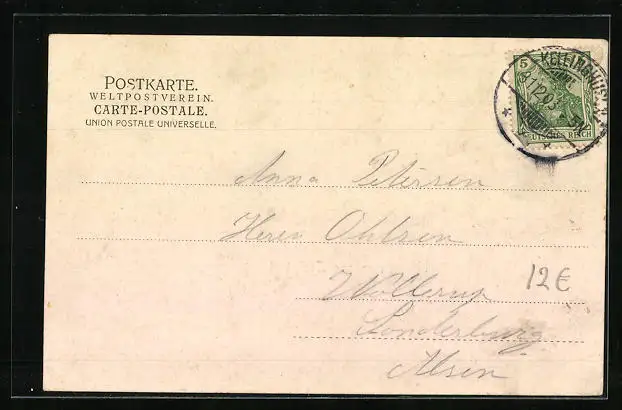 POSTKARTE.
WELTPOSTVEREIN.
CARTE-POSTALE.
UNION POSTALE UNIVERSELLE.
5
KELLINGHUSEN
DEUTSCHES REICH
Anna Petersen
Herrn Ohlsen
Wollerup
Sonderburg
Alsen
12€